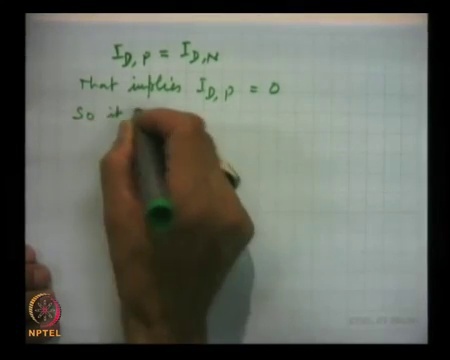 I_D,P = I_D,N
That implies I_D,P = 0
So it
NPTEL